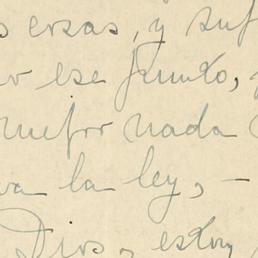 esas, y suf
ese punto, y
mejor nada
va la ley, -
Dios, estoy